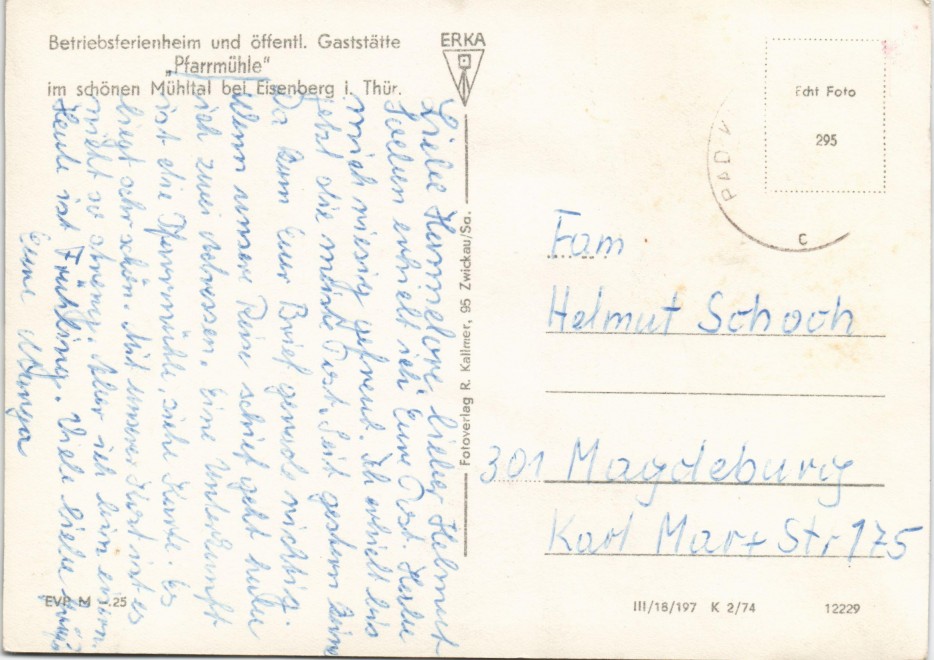 Betriebsferienheim und öffentl. Gaststätte
„Pfarrmühle"
im schönen Mühltal bei Eisenberg i. Thür.
ERKA
Echt Foto
295
Liebe Hannelore, lieber Helmut
Soeben erhielt ich Eure Post. Habe
mich riesig gefreut. Ich erhielt bis
jetzt die meiste Post. Seit gestern
Da kam Euer Brief gerade richtig.
Wenn unsere Reise schief geht
ich zwei Adressen. Eine Unterkunft
ist die Pfarrmühle, siehe Karte. Es
liegt sehr schön. Mit unserer Kost ist es
nicht so streng. Aber ich bin enorm
Heute ist Frühling. Viele liebe Grüße
Eure
Fotoverlag R. Kallmer, 95 Zwickau/Sa.
Fam
Helmut Schoch
301 Magdeburg
Karl Marx Str 175
EVP M -.25
III/18/197 K 2/74
12229